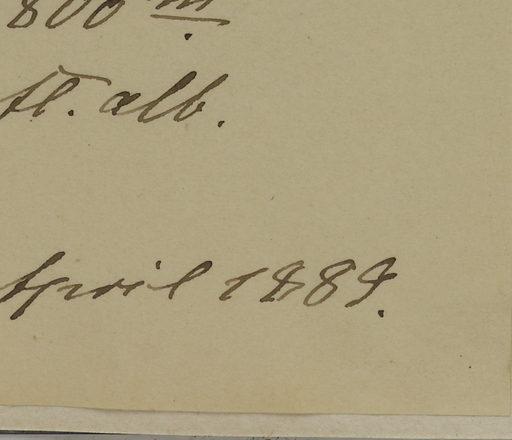 800 m.
fl. alb.
April 1889.